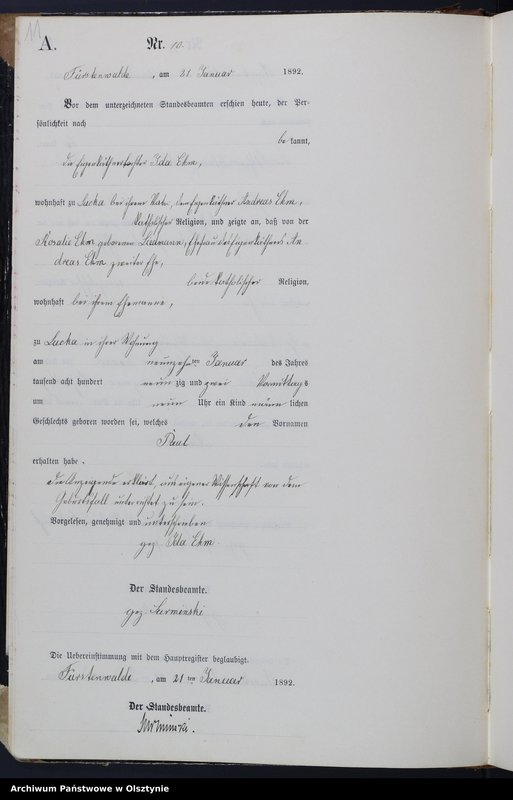 11
A. Nr. 10.
Fürstenwalde, am 21. Januar 1892.
Vor dem unterzeichneten Standesbeamten erschien heute, der Per-
sönlichkeit nach
be kannt,
die Eigenkäthnertochter Ida Ekm,
wohnhaft zu Lucka bei ihrem Vater, dem Eigenkäthner Andreas Ekm,
katholischer Religion, und zeigte an, daß von der
Rosalie Ekm geborenen, Ehefrau des Eigenkäthners An-
dreas Ekm, zweiter Ehe,
beide katholischer Religion,
wohnhaft bei ihrem Ehemanne,
zu Lucka in ihrer Wohnung
am neunzehnten Januar des Jahres
tausend acht hundert neun zig und zwei Vormittags
um neun Uhr ein Kind männ lichen
Geschlechts geboren worden sei, welches den Vornamen
Paul
erhalten habe.
Die Anzeigende erklärt, aus eigener Wissenschaft von dem
Geburtsfall unterrichtet zu sein.
Vorgelesen, genehmigt und unterschrieben
gez. Ida Ekm.
Der Standesbeamte.
gez. Surminski
Die Uebereinstimmung mit dem Hauptregister beglaubigt.
Fürstenwalde, am 21 ten Januar 1892.
Der Standesbeamte.
Surminski.
Archiwum Państwowe w Olsztynie